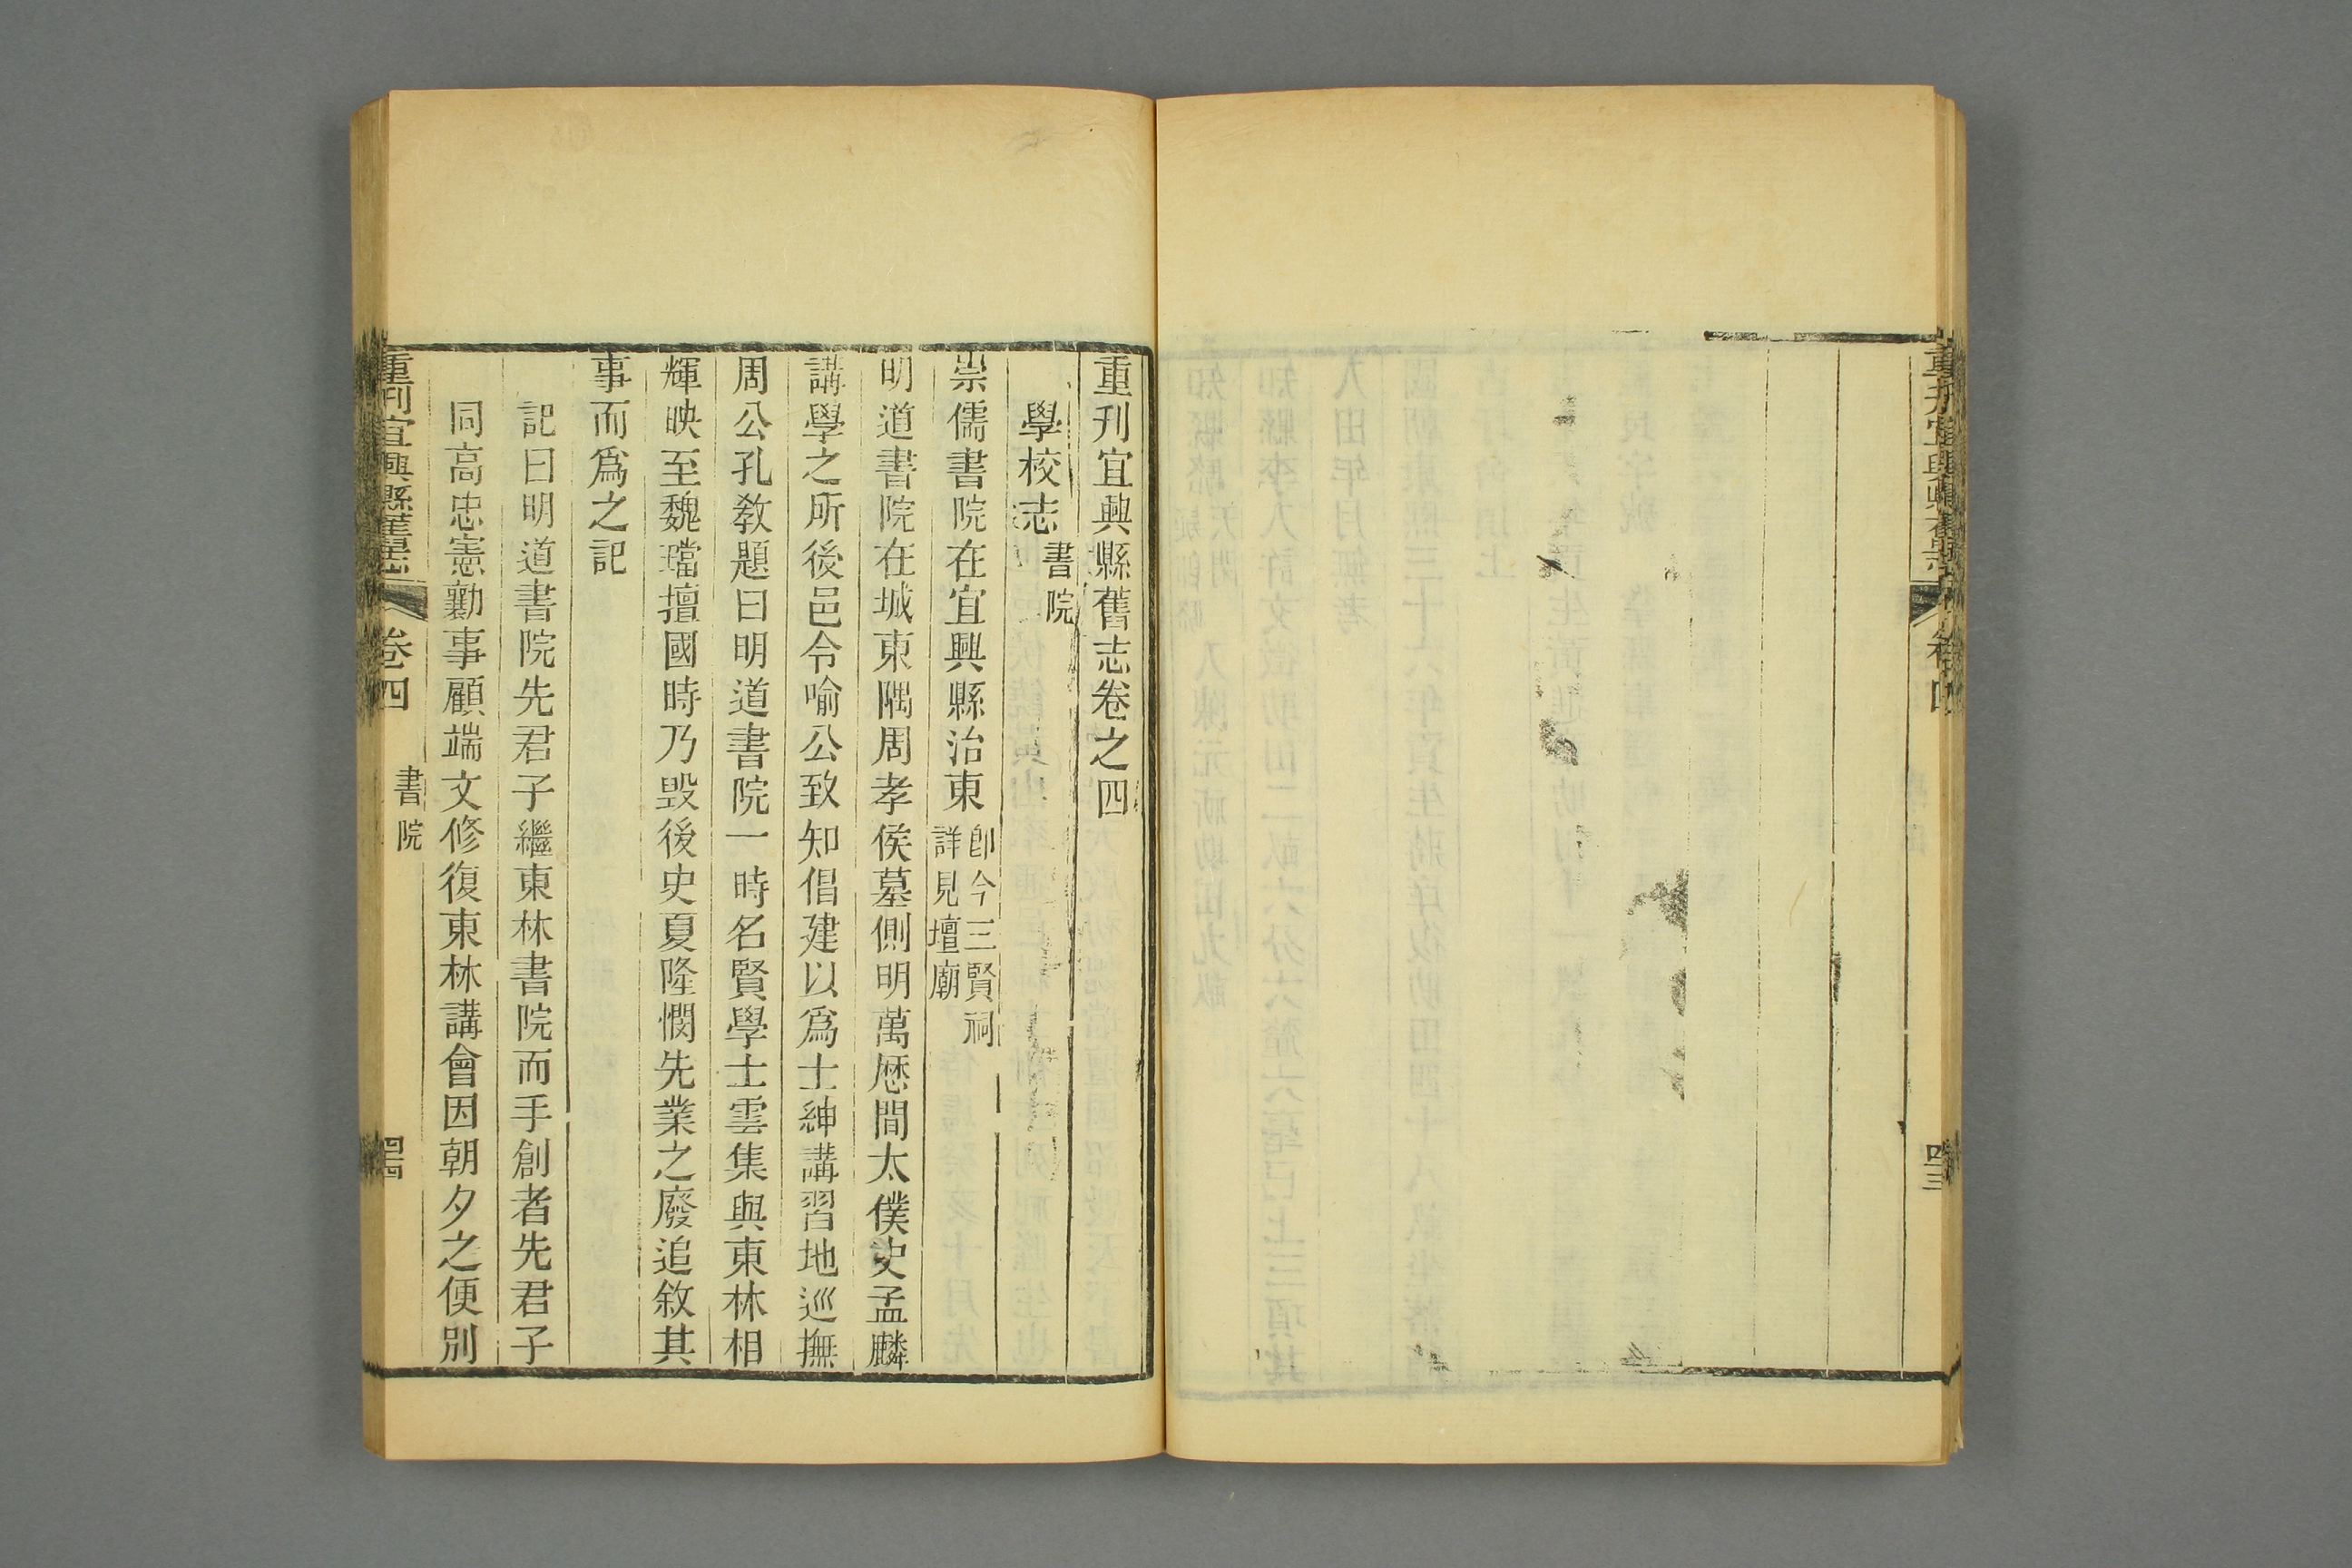 重刊宜興縣舊志
卷四
重刊宜興縣舊志卷之四
學校志 書院
崇儒書院在宜興縣治東 卽今三賢祠
詳見壇廟
明道書院在城東隅周孝侯墓側明萬厯間太僕史孟麟
講學之所後邑令喻公致知倡建以爲士紳講習地巡撫
周公孔教題曰明道書院一時名賢學士雲集與東林相
輝映至魏璫擅國時乃毀後史夏隆憫先業之廢追敘其
事而爲之記
記曰明道書院先君子繼東林書院而手創者先君子
同高忠憲勷事顧端文修復東林講會因朝夕之便別
重刊宜興縣舊志
卷四
書院